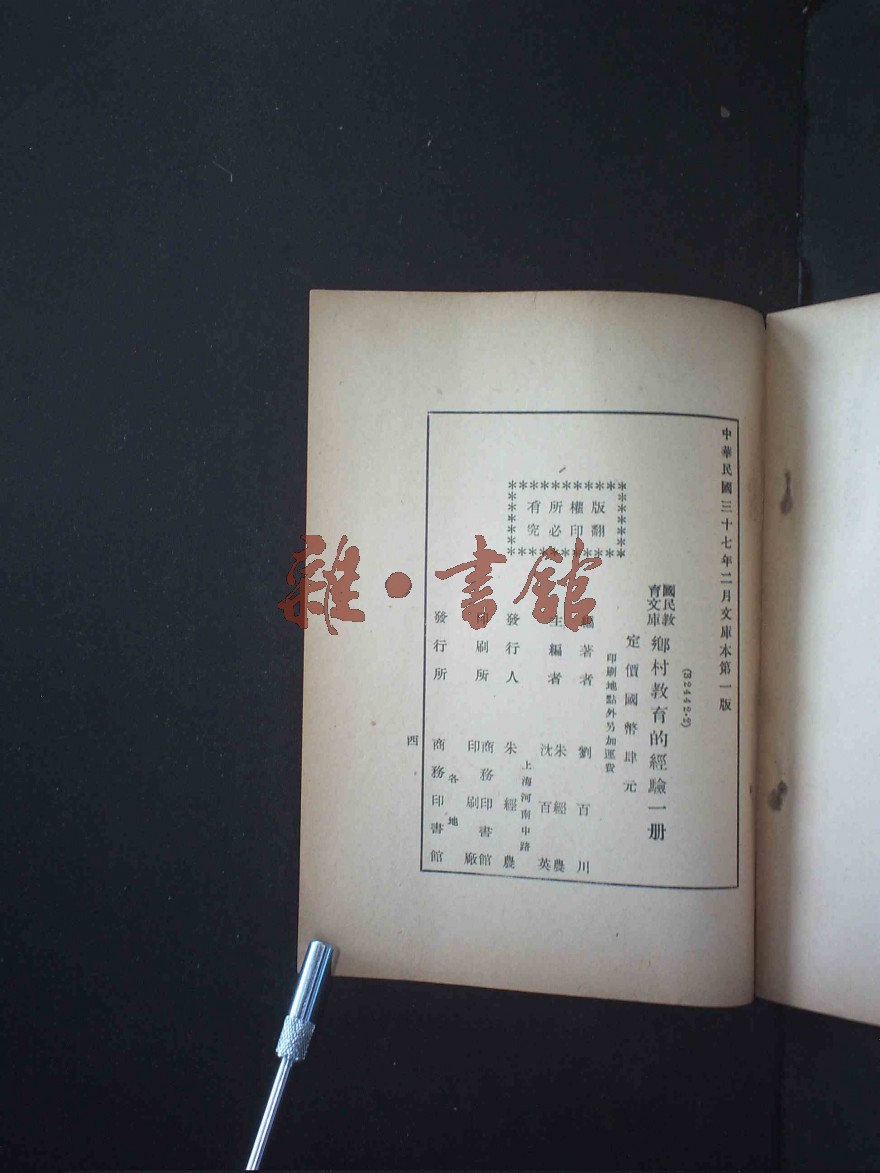 中華民國三十七年二月文庫本第一版
(52442·2)
國民教育文庫 鄉村教育的經驗一册
定價國幣肆元
印刷地點外另加運費
版權所有
翻印必究
編著者 劉百川
主編者 朱經農 沈百英
上海河南中路
發行人 朱經農
印刷所 商務印書館印刷廠
各地
發行所 商務印書館
西
雜·書館